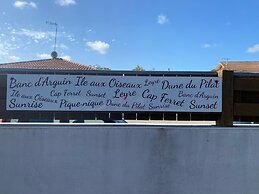 Banc d'Arguin Ile aux Oiseaux Leyre Dune du Pilat
Ile aux Oiseaux Cap Ferret Sunset Leyre Cap Ferret Banc d'Arguin
Sunrise Pique-nique Dune du Pilat Sunrise Ferret Sunset